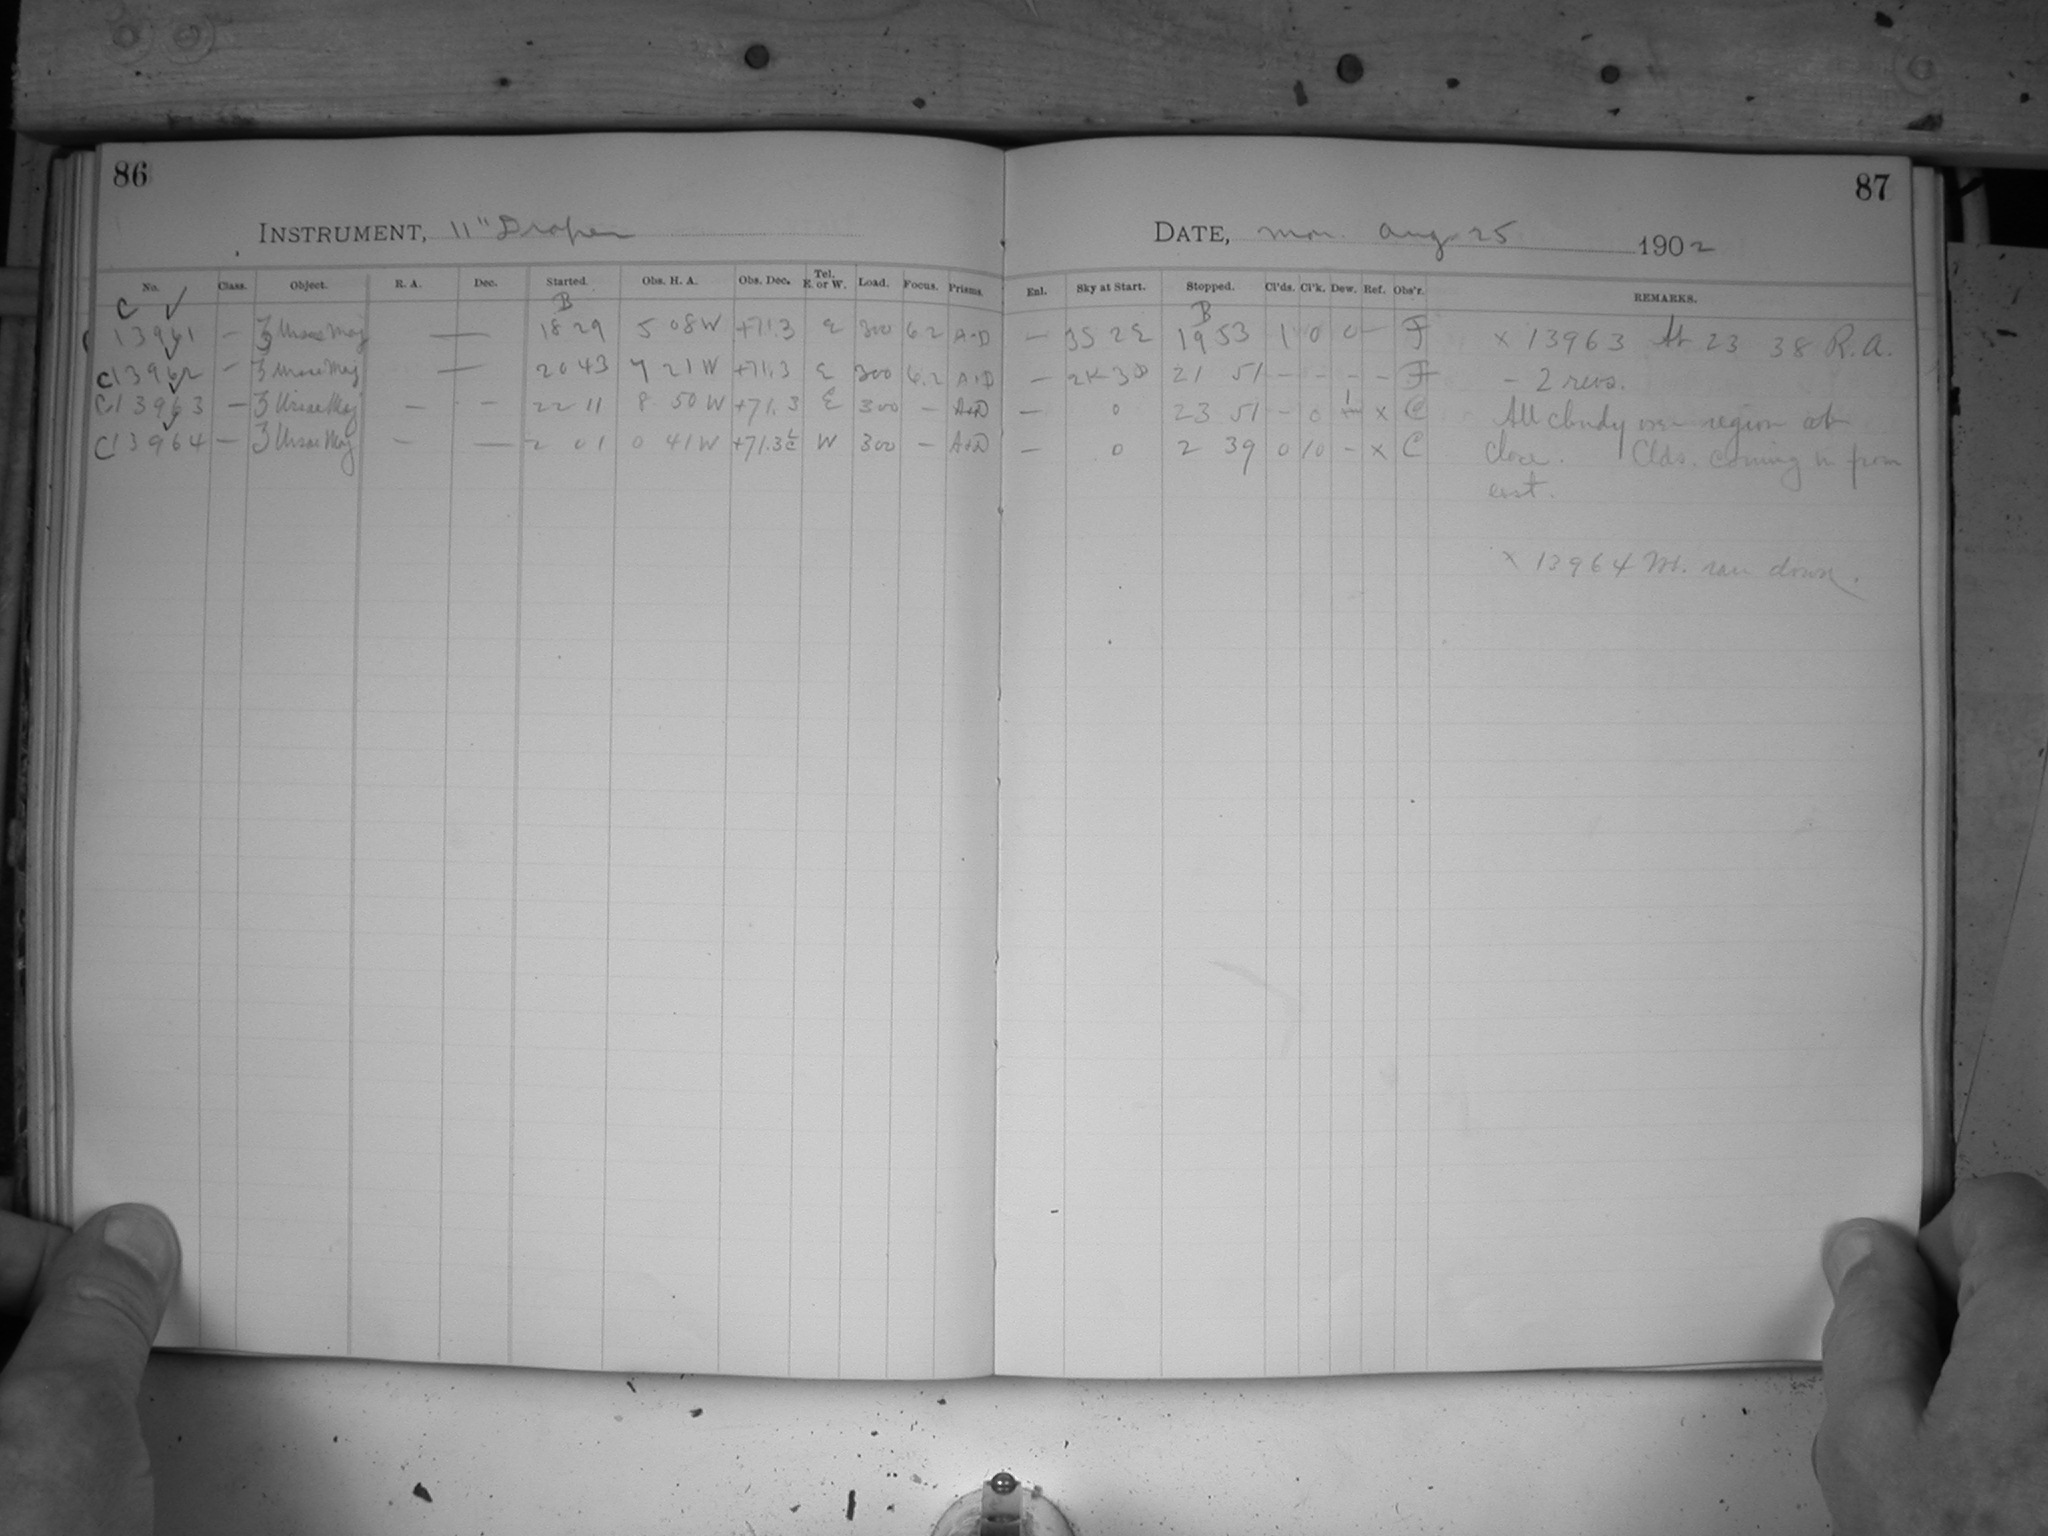 86
87
INSTRUMENT, 11" Draper
DATE, Mon. Aug 25 1902
No. Class. Object. R. A. Dec. Started. Obs. H. A. Obs. Dec. Tel. E. or W. Load. Focus. Prisms. Enl. Sky at Start. Stopped. Cl'ds. Cl'k. Dew. Ref. Obs'r. REMARKS.
C ✓ B B
13961 – ζ Ursae Maj — 18 29 5 08 W +71.3 E 300 6.2 A+D – 3S 2E 19 53 1 0 0 – F × 13963 At 23 38 R.A.
C13962 – ζ Ursae Maj — 20 43 7 21 W +71.3 E 300 6.2 A+D – 2K 3D 21 51 – – – – F – 2 revs.
C13963 – ζ Ursae Maj – – 22 11 8 50 W +71.3 E 300 – A+D – 0 23 51 – 0 1 × C All cloudy over region at
C13964 – ζ Ursae Maj – — 2 01 0 41 W +71.3 W 300 – A+D – 0 2 39 0 10 – × C close. Clds. coming in from
east.
× 13964 Wt. ran down.